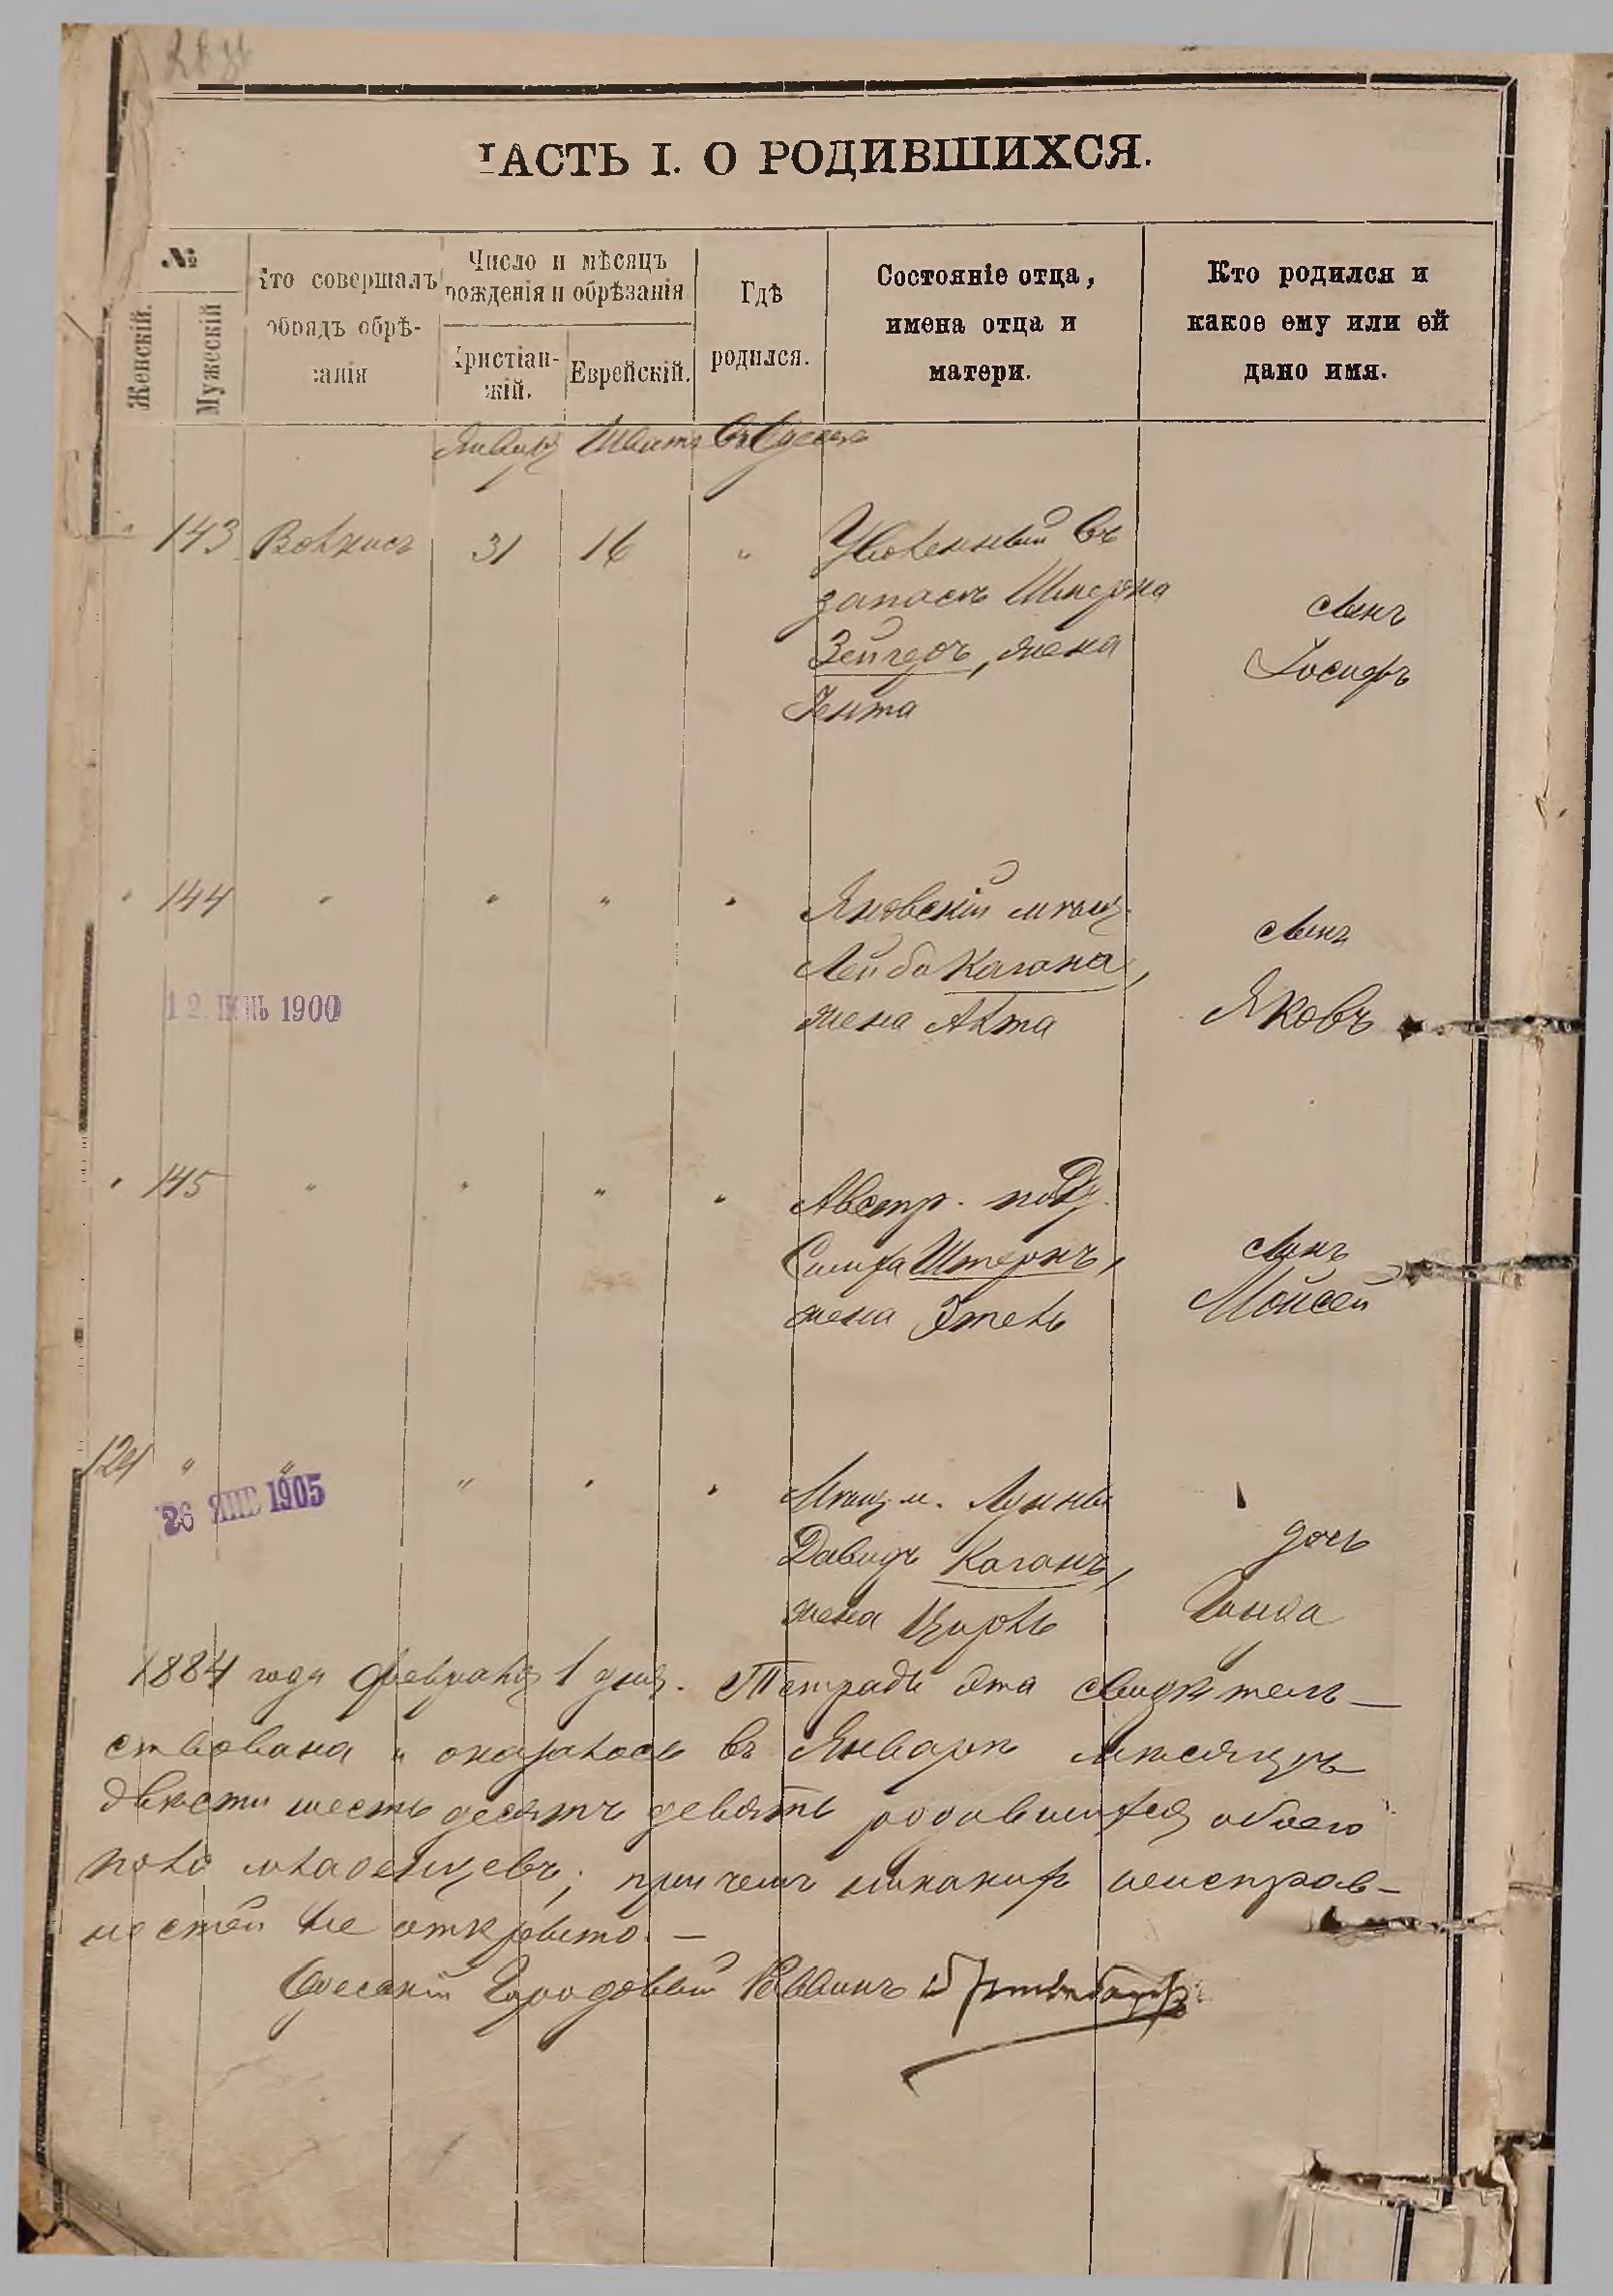 ЧАСТЬ I. О РОДИВШИХСЯ.
№
Женскій.
Мужескій
Кто совершалъ
обрядъ обрѣ-
занія
Число и мѣсяцъ
рожденія и обрѣзанія
Христіан-
скій.
Еврейскій.
Гдѣ
родился.
Состояніе отца,
имена отца и
матери.
Кто родился и
какое ему или ей
дано имя.
Январь Шватъ Въ Одессѣ
" 143 31 16 " Уволенный въ
запасъ
Зейгеръ, жена
Гента
Сынъ
Іосифъ
" 144 " " " " Яновскій мѣщ.
Лейба Кагана,
жена
Сынъ
Яковъ
12 ІЮНЬ 1900
" 145 " " " " Австр. подд.
Штернъ,
жена Этель
Сынъ
Мойсей
124 " " " " " Мѣщ. м.
Давидъ Каганъ,
жена Цирль
дочь
26 ЯНВ 1905
1884 года Февраля 1 дня. Тетрадь эта свидѣтель-
ствована и оказалось въ Январѣ мѣсяцѣ
двѣсти шесть десятъ девять родившихся обоего
пола младенцевъ; причемъ никакихъ неисправ-
ностей не открыто. —
Одесскій Городовой Раввинъ